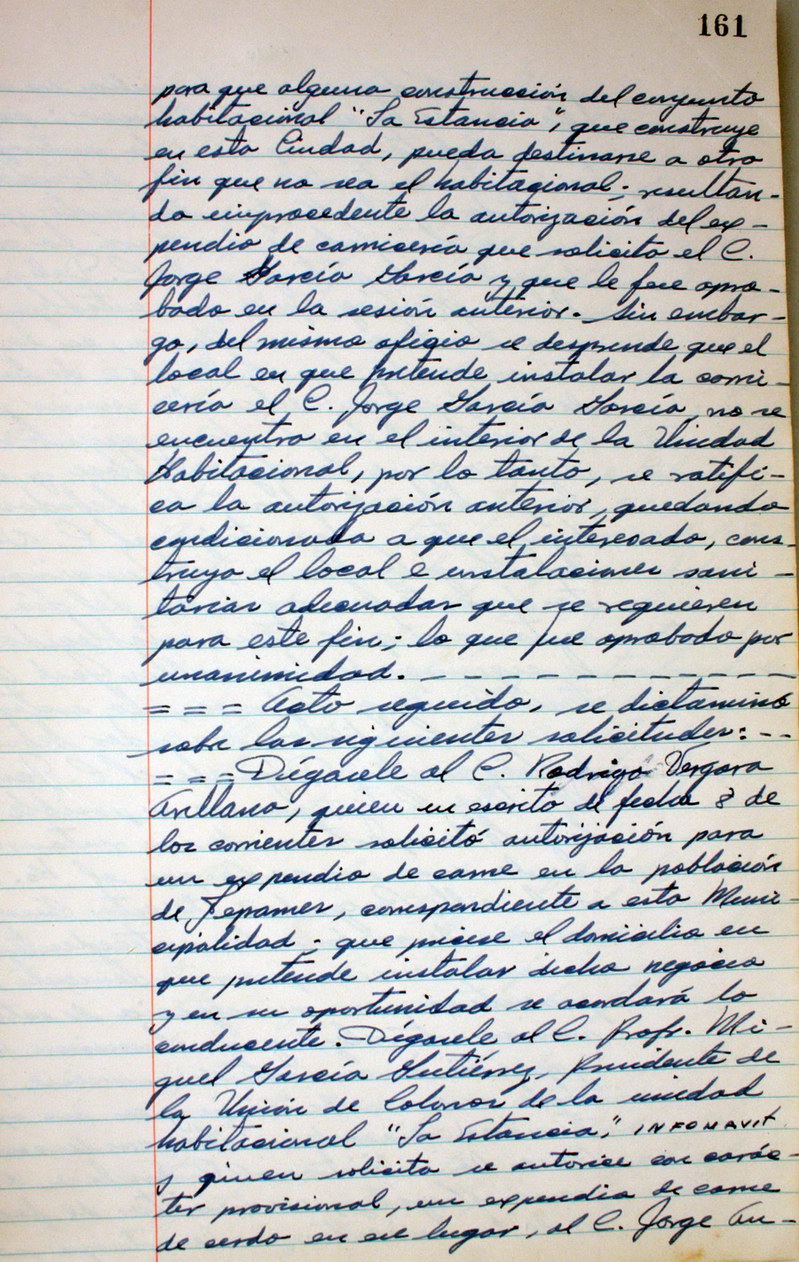 161
para que alguna construcción del conjunto
habitacional "La Estancia", que construye
en esta Ciudad, pueda destinarse a otro
fin que no sea el habitacional; resultan-
do improcedente la autorización del ex-
pendio de carnicería que solicita el C.
Jorge García García y que le fue apro-
bado en la sesión anterior. Sin embar-
go, del mismo oficio se desprende que el
local en que pretende instalar la carni-
cería el C. Jorge García García, no se
encuentra en el interior de la Unidad
Habitacional, por lo tanto, se ratifi-
ca la autorización anterior, quedando
condicionada a que el interesado, cons-
truya el local e instalaciones sani-
tarias adecuadas que se requieren
para este fin; lo que fue aprobado por
unanimidad. - - - - - - - - - - -
= = = Acto seguido, se dictaminó
sobre las siguientes solicitudes: - -
= = = Dígasele al C. Rodrigo Vergara
Arellano, quien en escrito de fecha 8 de
los corrientes solicitó autorización para
un expendio de carne en la población
de Tepames, correspondiente a esta Muni-
cipalidad; que precise el domicilio en
que pretende instalar dicho negocio
y en su oportunidad se acordará lo
conducente. Dígasele al C. Profr. Mi-
guel García Gutiérrez, Presidente de
la Unión de Colonos de la unidad
habitacional "La Estancia", INFONAVIT
y quien solicita se autorice con carác-
ter provisional, un expendio de carne
de cerdo en ese lugar, al C. Jorge An-